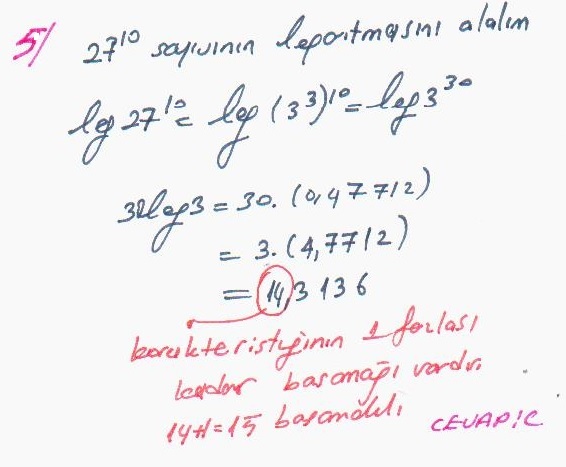 5/ 27¹⁰ sayısının logaritmasını alalım
log 27¹⁰ = log (3³)¹⁰ = log 3³⁰
30log3 = 30. (0,47712)
= 3. (4,7712)
= 14,3136
karakteristiğinin 1 fazlası
kadar basamağı vardır.
14+1=15 basamaklı
CEVAP: C